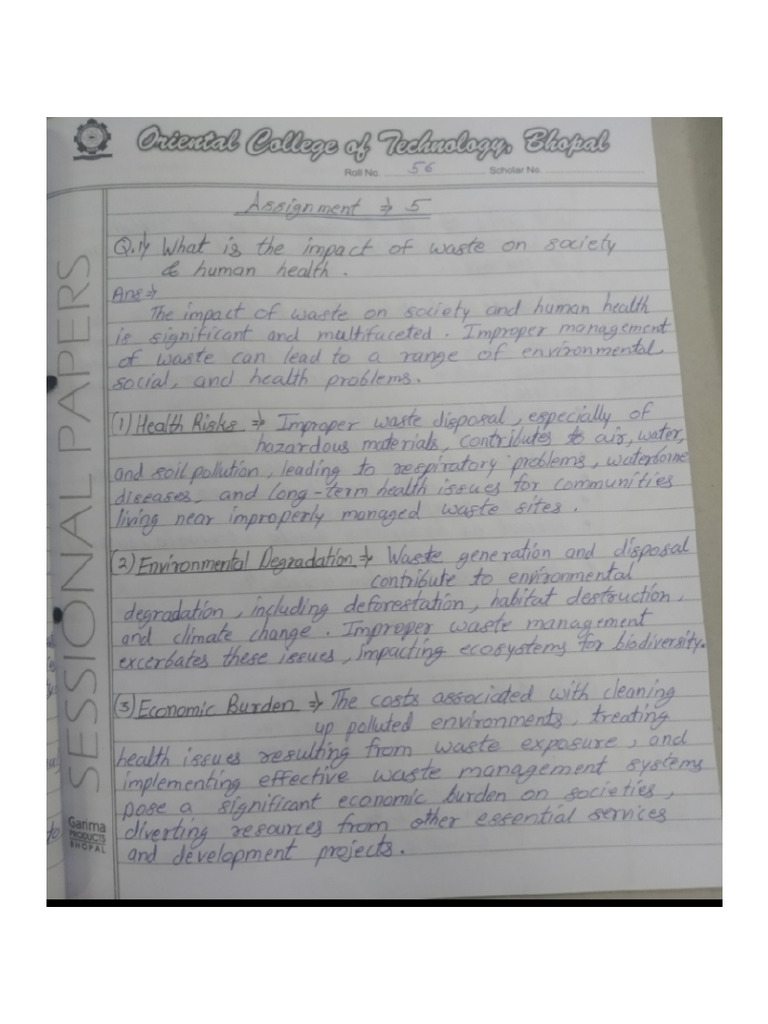 Oriental College of Technology, Bhopal
Roll No. 56 Scholar No.
Assignment ⇒ 5
Q.1) What is the impact of waste on society
& human health.
Ans ⇒
The impact of waste on society and human health
is significant and multifaceted. Improper management
of waste can lead to a range of environmental,
social, and health problems.
(1) Health Risks ⇒ Improper waste disposal, especially of
hazardous materials, contributes to air, water,
and soil pollution, leading to respiratory problems, waterborne
diseases, and long-term health issues for communities
living near improperly managed waste sites.
(2) Environmental Degradation ⇒ Waste generation and disposal
contribute to environmental
degradation, including deforestation, habitat destruction,
and climate change. Improper waste management
excerbates these issues, impacting ecosystems for biodiversity.
(3) Economic Burden ⇒ The costs associated with cleaning
up polluted environments, treating
health issues resulting from waste exposure, and
implementing effective waste management systems
pose a significant economic burden on societies,
diverting resources from other essential services
and development projects.
SESSIONAL PAPERS
Garima
PRODUCTS
BHOPAL